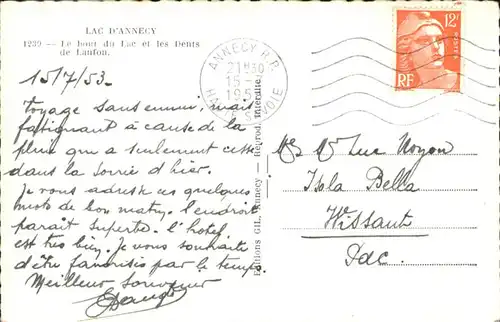 LAC D'ANNECY
1239 - Le bout du Lac et les Dents
de Lanfon.
15/7/53.
Voyage sans ennui, mais
fatiguant à cause de la
pluie qui a seulement cessé
dans la soirée d'hier.
Je vous adresse ces quelques
mots de bon matin. L'endroit
paraît superbe. L'hôtel
est très bien. Je vous souhaite
d'être favorisés par le temps.
Meilleur souvenir
Editions GIL, Annecy - Reprod. Interdite.
ANNECY R.P.
21H30
15-7
195
HAUTE SAVOIE
12F
POSTES
RF
Mr Luc Noyon
Isola Bella
Wissant
Pdc.